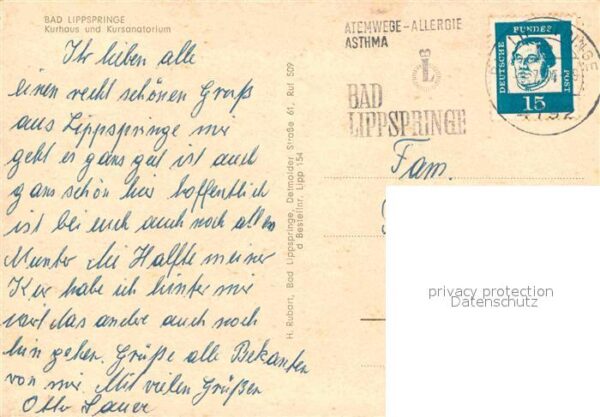 BAD LIPPSPRINGE
Kurhaus und Kursanatorium
Ihr lieben alle
einen recht schönen Gruß
aus Lippspringe mir
geht es ganz gut ist auch
ganz schön hier hoffentlich
ist bei euch auch noch alles
Munter die Hälfte meiner
Kur habe ich hinter mir
wird das andre auch noch
hin gehen. Grüße alle Bekanten
von mir. Mit vielen Grüßen
Otto Lauer
H. Rubart, Bad Lippspringe, Detmolder Straße 61, Ruf 509
d Bestellnr. Lipp 154
ATEMWEGE-ALLERGIE
ASTHMA
L
BAD
LIPPSPRINGE
DEUTSCHE
BUNDES
POST
15
Fam.
privacy protection
Datenschutz